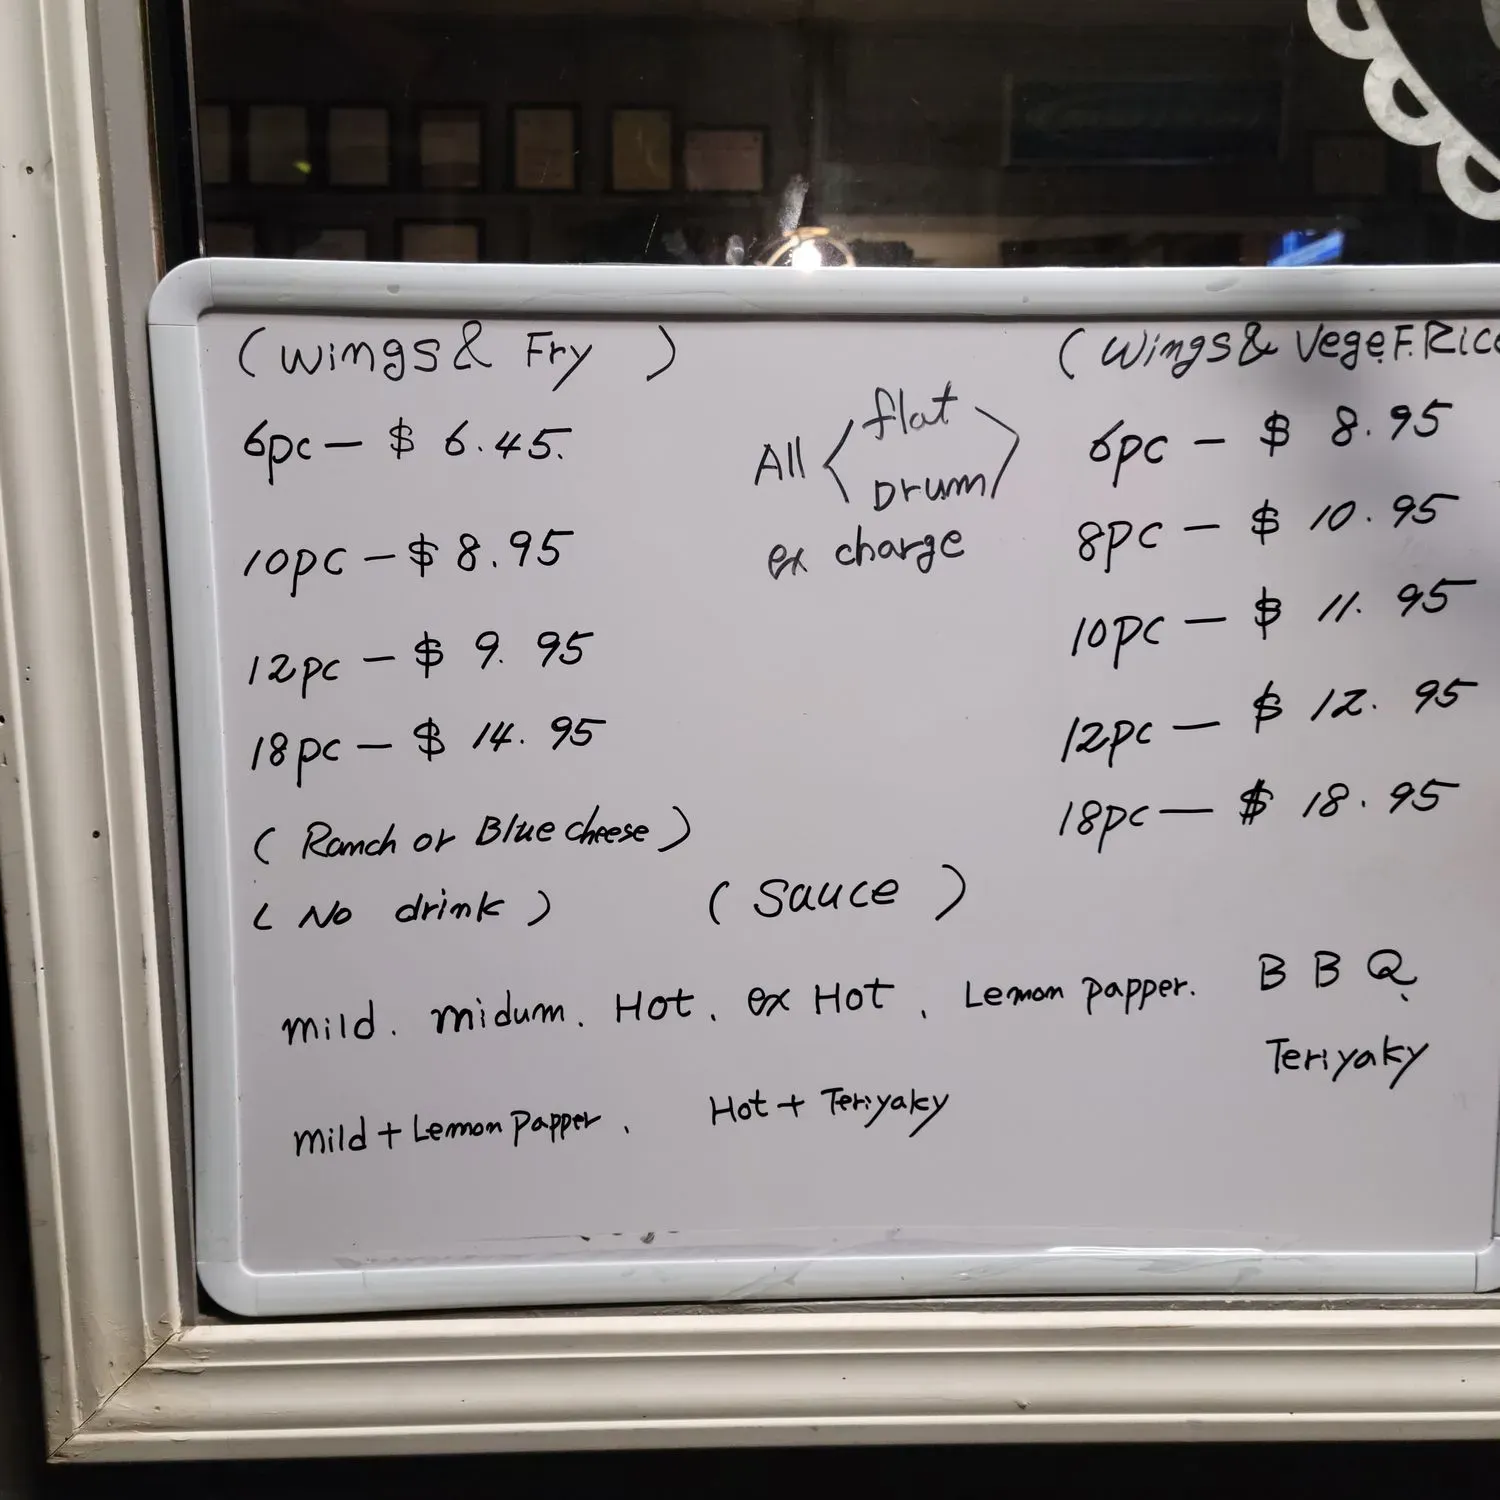 (Wings & Fry)
6pc - $ 6.45.
10pc - $ 8.95
12pc - $ 9.95
18pc - $ 14.95
(Ranch or Blue cheese)
(No drink)
All < flat
Drum >
ex charge
(Wings & Vege F. Rice
6pc - $ 8.95
8pc - $ 10.95
10pc - $ 11.95
12pc - $ 12.95
18pc - $ 18.95
(Sauce)
mild. midum. Hot. ex Hot, Lemon papper. BBQ,
Teriyaky
mild + Lemon Papper, Hot + Teriyaky